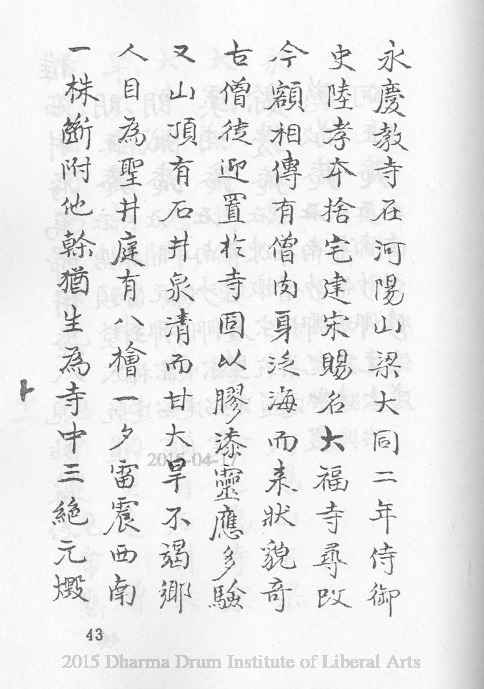 永慶教寺在河陽山梁大同二年侍御
史陸孝本捨宅建宋賜名大福寺尋改
今額相傳有僧肉身泛海而来狀貌奇
古僧徒迎置於寺固以膠漆靈應多驗
又山頂有石井泉清而甘大旱不竭鄉
人目為聖井庭有八檜一夕雷震西南
一株斷附他榦猶生為寺中三絶元燬
43
2015-04-
2015 Dharma Drum Institute of Liberal Arts